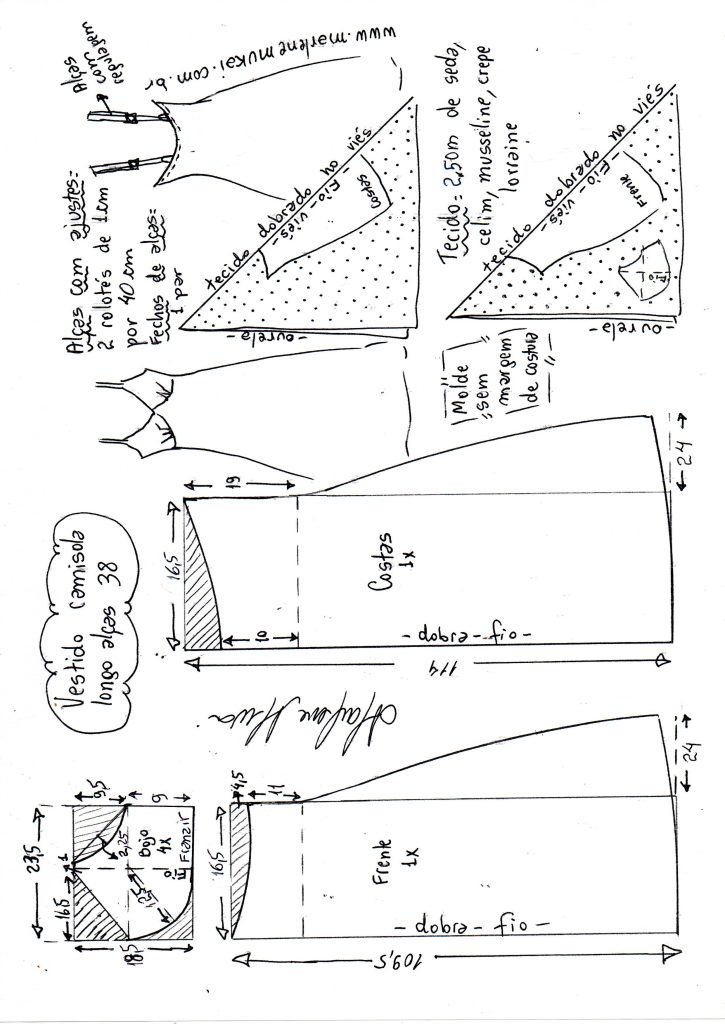 Vestido camisola
longo alças 38
Alças com ajustes:
2 rolotês de 1cm
por 40 cm
Fechos de alças:
1 par
Alças
com
regulagem
www.marlenemukai.com.br
23,5
16,5
1
9,5
9
18,5
2,25
Bojo
4x
Fio
Franzir
16,5
4,5
11
Frente
1x
- fio - dobra -
109,5
24
16,5
19
10
Costas
1x
- fio - dobra -
114
24
tecido dobrado no viés
- Fio - viés -
costas
- ourela -
Molde
sem
margem
de costura
Tecido: 2,50m de seda,
cetim, musseline, crepe
lorraine
tecido dobrado no viés
- Fio - viés -
Frente
Fio
- ourela -